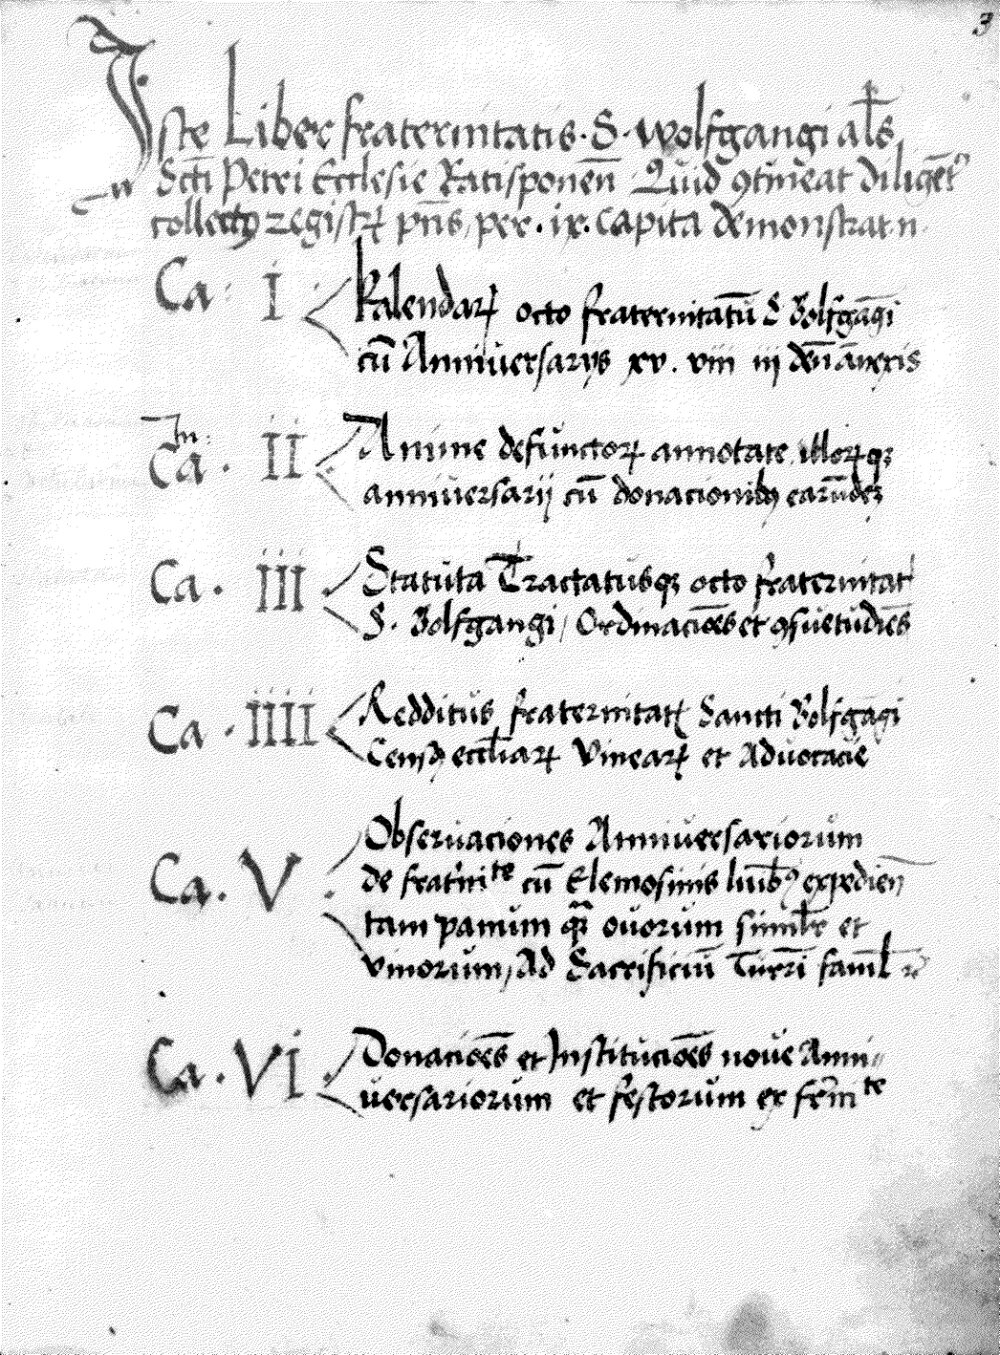 3
Iste Liber fraternitatis · S · Wolfgangi al̄s
Scti Petri Ecclesie Ratisponen̄ · Quid ꝯtineat diligēt͛
collectꝰ registrꝝ pn̄s, per · ix · capita demonstrat
Ca · I Kalendarꝝ octo fraternitatū S Wolfgāgi
cū Anniuersarijs xv . viii iij den̄ ānexis
In
Ca · II Anime defunctorꝝ annotate illorꝝqꝫ
anniuersarij cū donacionibꝰ earūdeꝫ
Ca · III Statuta Tractatusqꝫ octo fraternitat
S · Wolfgangi / Ordinacōes et ꝯsuetudīes
Ca · IIII Redditus fraternitatꝭ Sancti Wolfgāgi
Censꝰ eccl̄iarꝝ Vinearꝝ et Aduocacie
Ca · V Obseruaciones Anniuersariorum
de frat͛nite cū Elemosinis expedien̄
tam panum qꝫ ouorum simil̄r et
Vinorum, Ad Sacrificiū famil̄
Ca · VI Donacōes et Institucōes noue Anni-
uersariorum et festorum ex fr̄nite